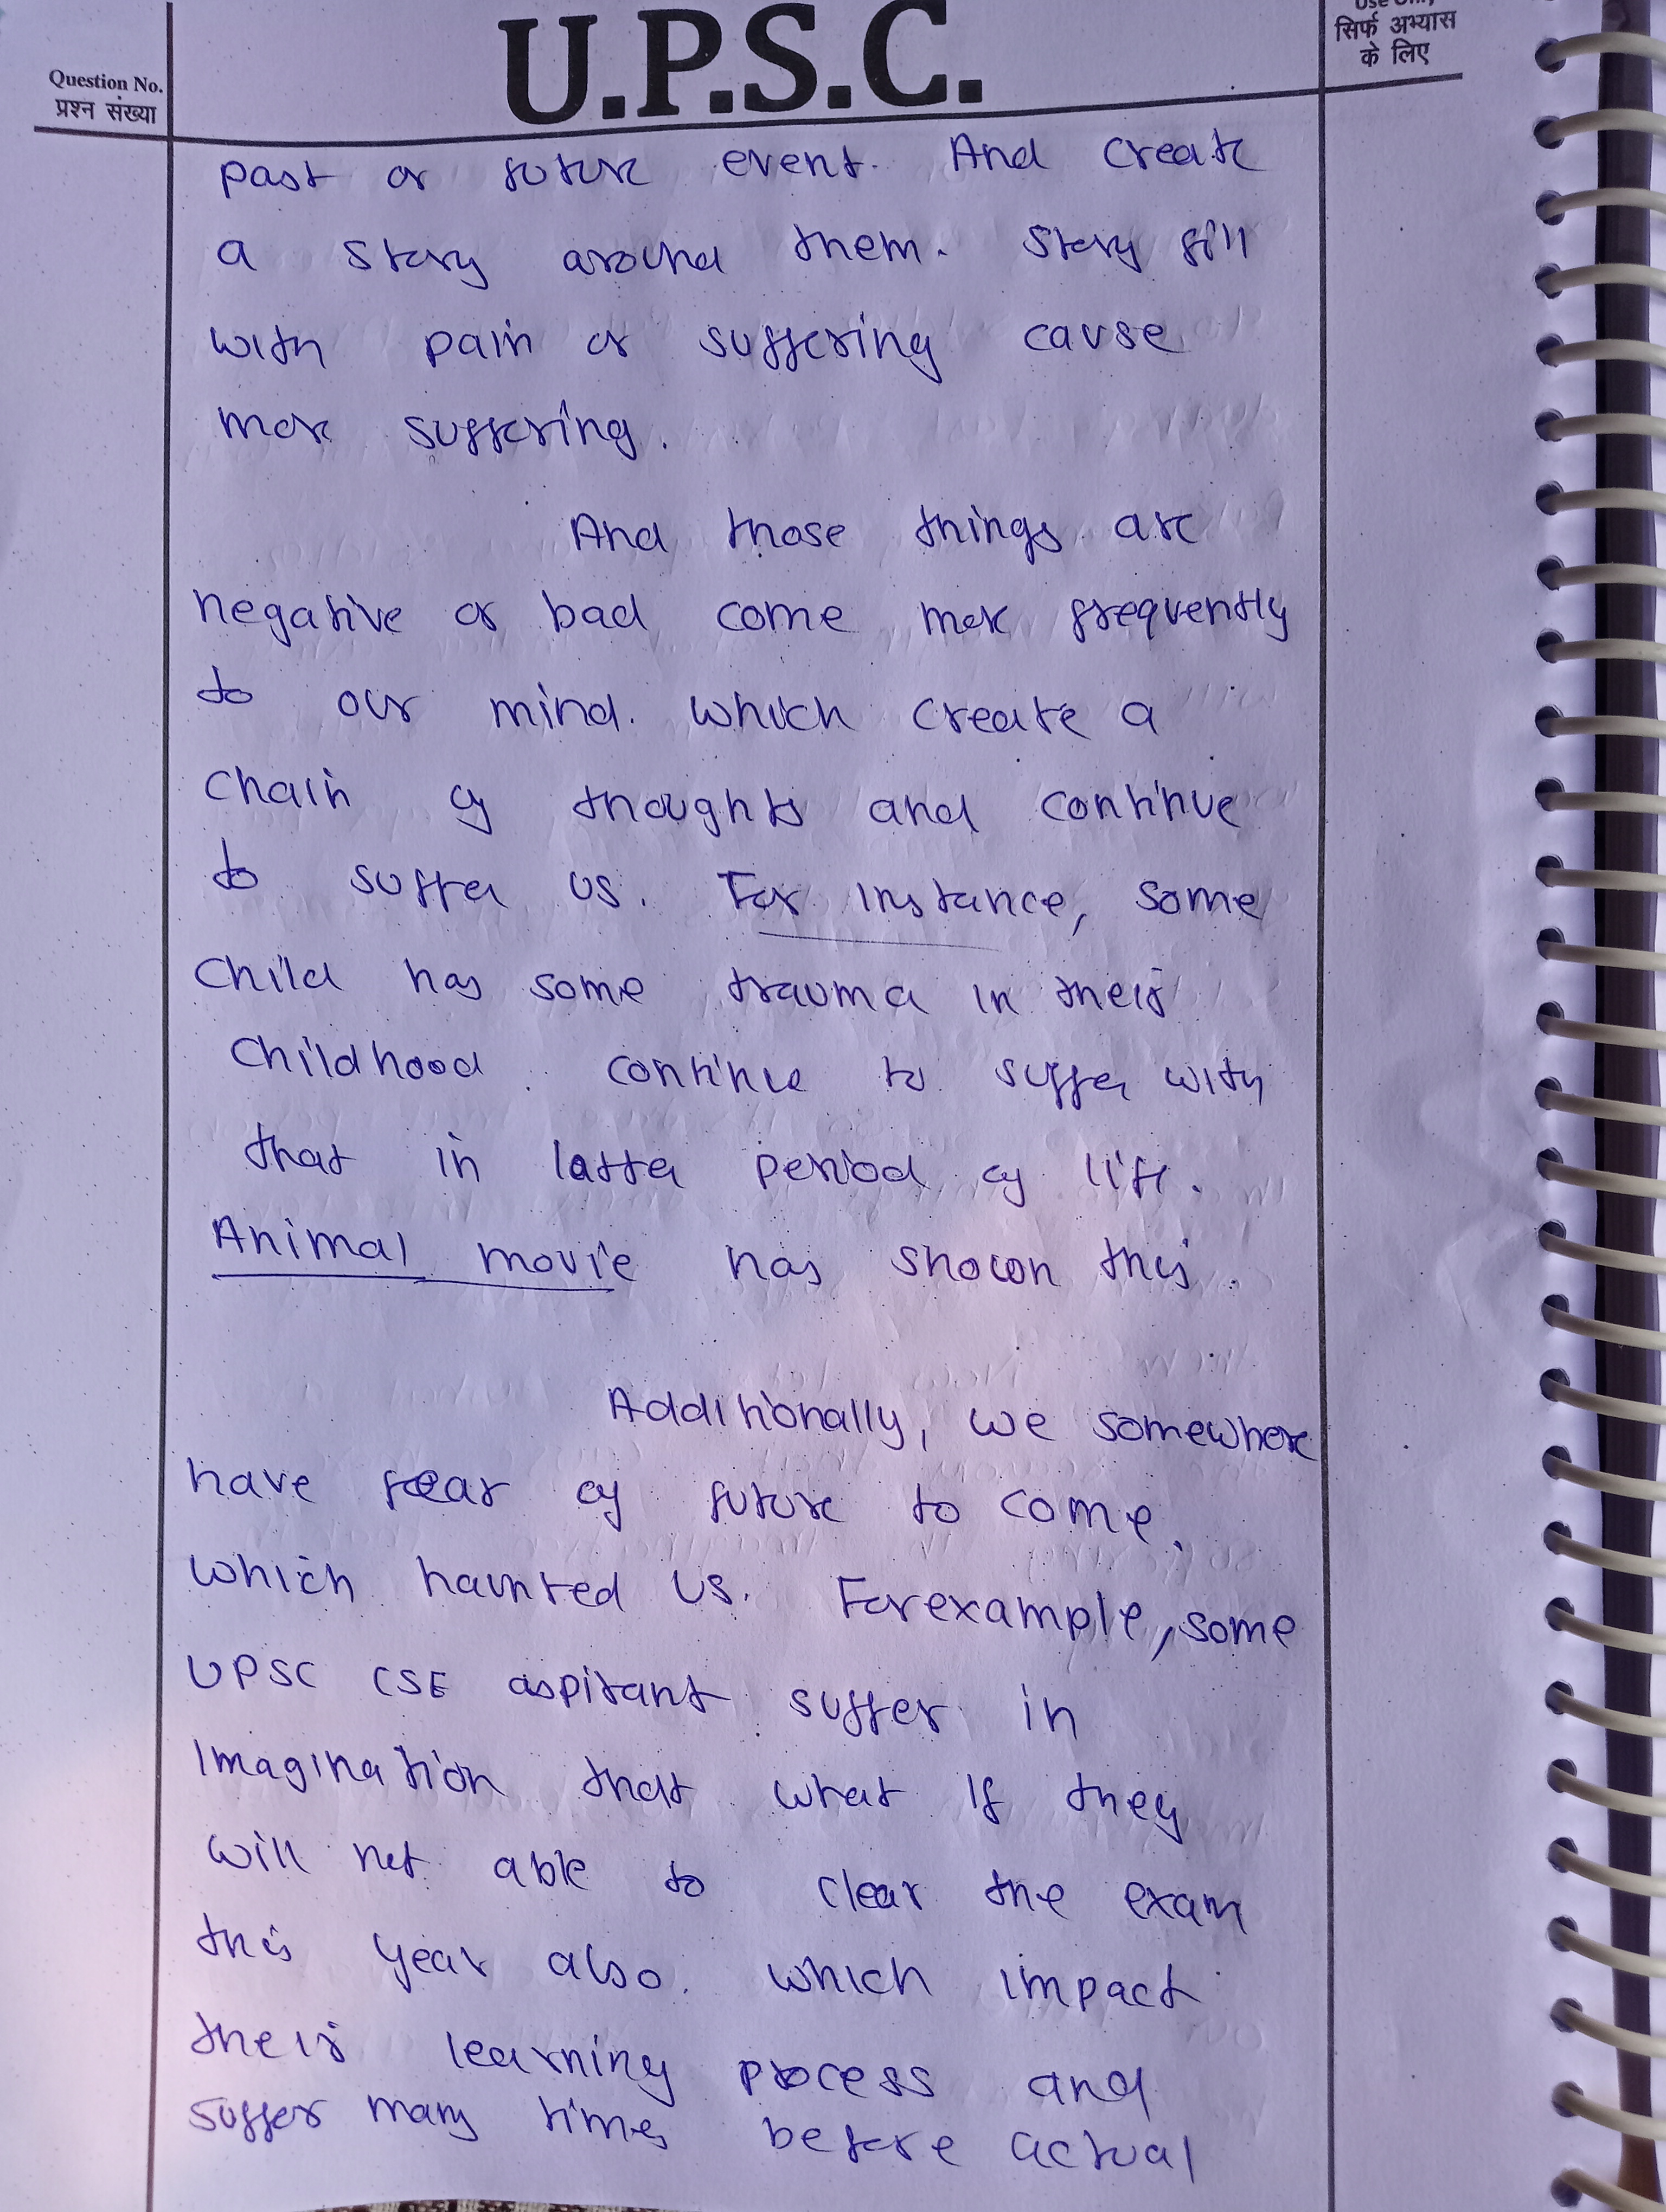 U.P.S.C.
Question No.
प्रश्न संख्या
सिर्फ अभ्यास
के लिए
past or future event. And create
a story around them. Story fill
with pain or suffering cause
more suffering.
And those things are
negative or bad come more frequently
to our mind. which create a
chain of thoughts and continue
to suffer us. For instance, some
child has some trauma in their
childhood. continue to suffer with
that in latter period of life.
Animal movie has shown this.
Additionally, we somewhere
have fear of future to come.
which haunted us. For example, some
UPSC CSE aspirant suffer in
imagination that what if they
will not able to clear the exam
this year also. which impact
their learning process and
suffer many times before actual